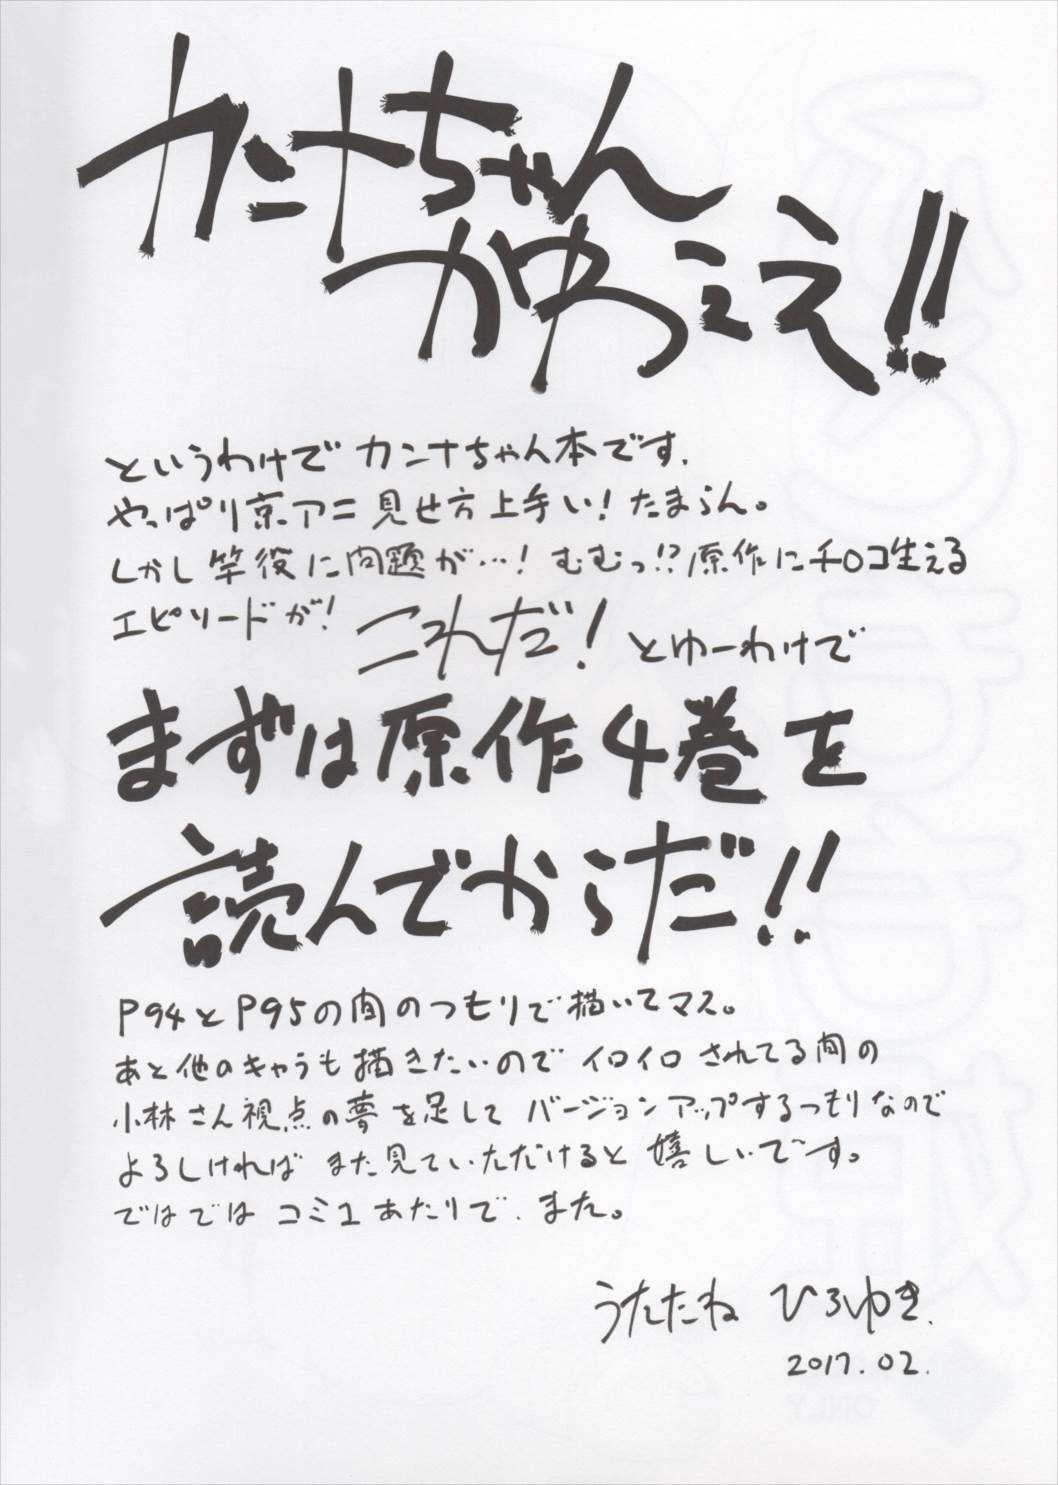 カンナちゃん
かゆっええ!!
というわけでカンナちゃん本です.
やっぱり京アニ見せ方上手い!たまらん。
しかし竿役に問題が…!むむっ!?原作にチロコ生える
エピソードが!これだ!とゆーわけで
まずは原作4巻を
読んでからだ!!
P94とP95の間のつもりで描いてマス。
あと他のキャラも描きたいのでイロイロされてる間の
小林さん視点の夢を足してバージョンアップするつもりなので
よろしければまた見ていただけると嬉しいです。
ではではコミ1あたりで.また。
うたたねひろゆき.
2017.02.